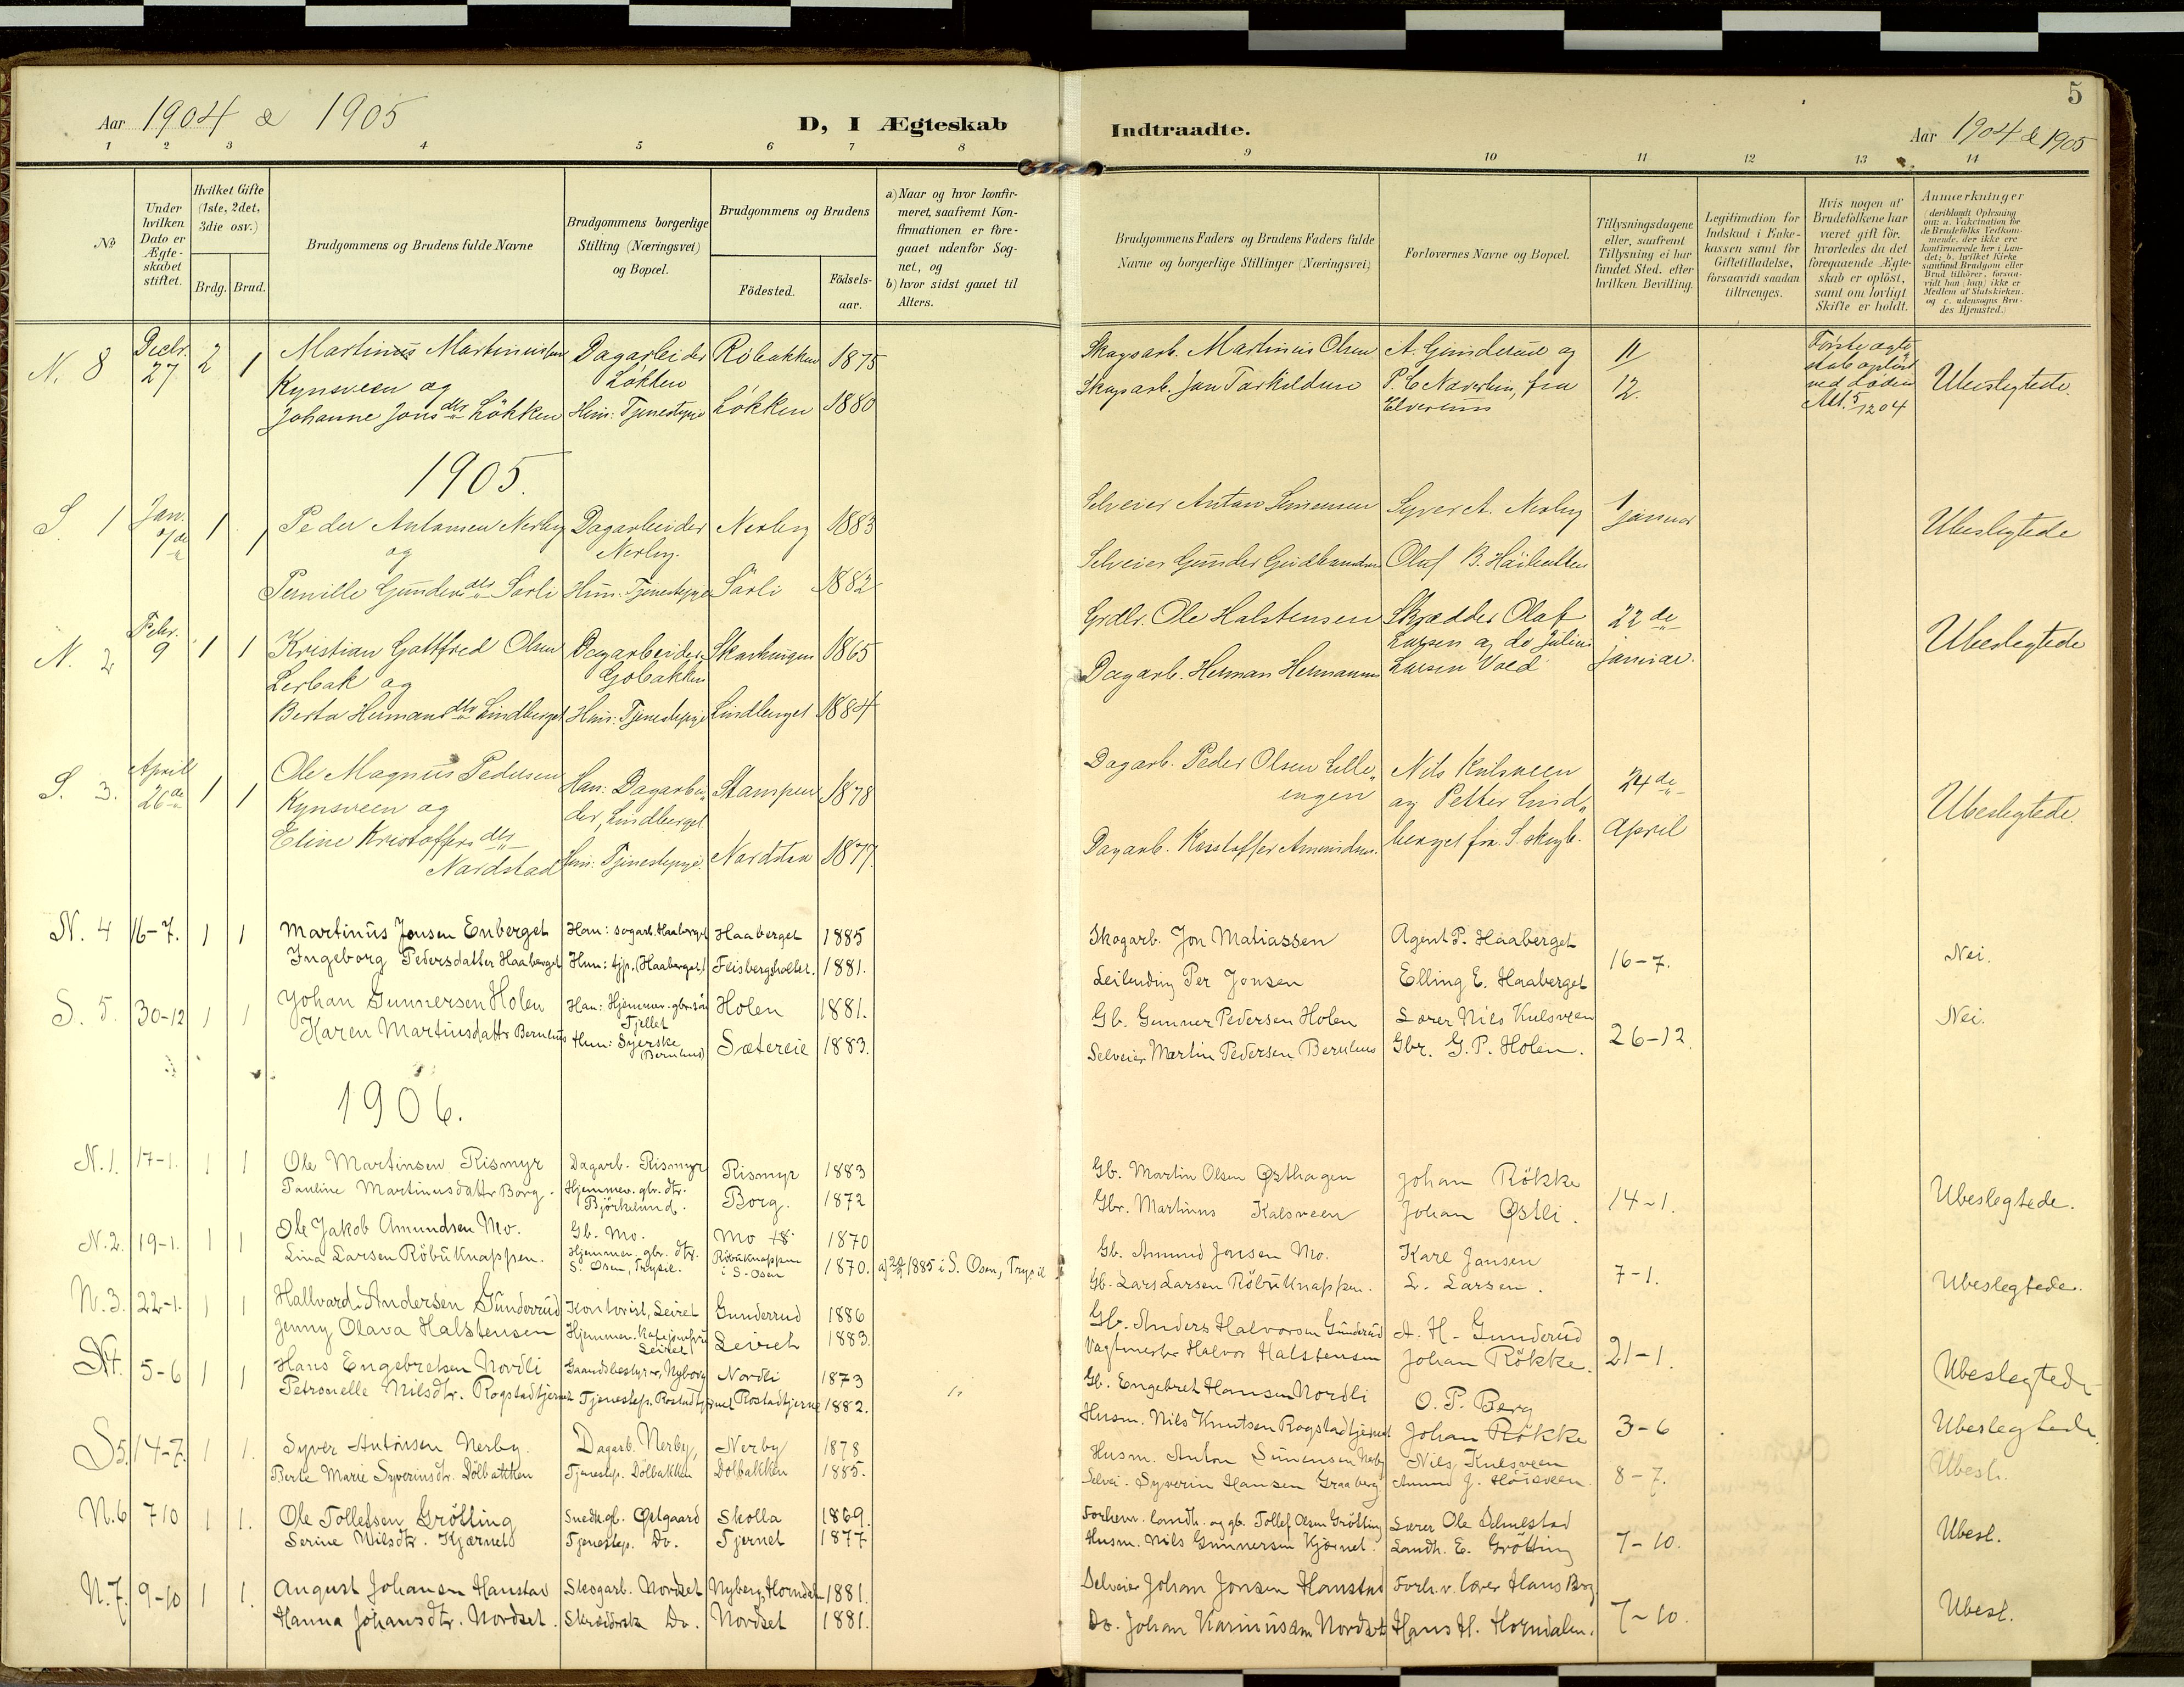 Aar 1904 & 1905
D, I Ægteskab
Indtraadte.
5
Aar 1904 & 1905
1 2 3 4 5 6 7 8 9 10 11 12 13 14
No
Under hvilken Dato er Ægteskabet stiftet.
Hvilket Gifte (1ste, 2det, 3die osv.)
Brdg. Brud.
Brudgommens og Brudens fulde Navne
Brudgommens borgerlige Stilling (Næringsvei) og Bopæl.
Brudgommens og Brudens
Födested.
Födsels-aar.
a) Naar og hvor konfirmeret, saafremt Konfirmationen er foregaaet udenfor Sognet, og
b) hvor sidst gaaet til Alters.
Brudgommens Faders og Brudens Faders fulde Navne og borgerlige Stillinger (Næringsvei)
Forlovernes Navne og Bopæl.
Tillysningsdagene eller, saafremt Tillysning ei har fundet Sted, efter hvilken Bevilling.
Legitimation for Indskud i Enkekassen samt for Giftetilladelse, forsaavidt saadan tiltrænges.
Hvis nogen af Brudefolkene har været gift för, hvorledes da det foregaaende Ægteskab er oplöst, samt om lovligt Skifte er holdt.
Anmærkninger (deriblandt Oplysning om: a. Vakcination for de Brudefolks Vedkommende, der ikke ere konfirmerede her i Landet; b. hvilket Kirkesamfund Brudgom eller Brud tilhörer, forsaavidt han (hun) ikke er Medlem af Statskirken, og c. udensogns Brudes Hjemsted.)
N. 8 Decbr. 27 2 1 Martinus Martinussen Kynsveen og Dagarbeider Løkken Röbakken 1875 Skogsarb. Martinus Olsen A. Gunderud og 11/12. Første ægteskab opløst ved døden Ubeslegtede.
Johanne Jonsdtr Løkken Hun: Tjenestepige Løkken 1880 Skogsarb. Jon Torkildsen P. C. Naverlien, fra Elverum
1905.
S. 1 Jan. 1 1 Peder Antonsen Nerby og Dagarbeider Nerby. Nerby 1883 Selveier Anton Simensen Syver A. Nerby 1 januar Ubeslegtede
Pernille Gundersdtr Sørli Hun: Tjenestepige Sørli 1882 Selveier Gunder Gudbrandsen Olaf B. Haikolten
N. 2 Febr. 9 1 1 Kristian Gottfred Olsen Lerbak og Dagarbeider, Gobakken 1865 Grdbr. Ole Halstensen Skrædder Olaf Larsen og do Julius Larsen Vold 22de januar. Ubeslegtede
Berta Hermansdtr Lindberget Hun: Tjenestepige Lindberget 1884 Dagarb. Herman Hermansen
S. 3. April 26de 1 1 Ole Magnus Pedersen Kynsveen og Han: Dagarbeider, Lindberget Stampen 1878 Dagarb. Peder Olsen Lilleengen Nils Kulsveen og Petter Lindberget fra S. skogb. 24de April Ubeslegtede.
Eline Kristoffersdtr Nordstad Hun: Tjenestepige. Nordstad 1877. Dagarb. Kristoffer Amundsen.
N. 4 16-7. 1 1 Martinus Jonsen Enberget Han: sagarb. Haaberget Haaberget 1885 Skogarb. Jon Matiassen Agent P. Haaberget 16-7. Nei.
Ingeborg Pedersdatter Haaberget Hun: tjp. (Haaberget) Feisbergholtet. 1881. Leilending Per Jonsen Elling E. Haaberget
S. 5. 30-12 1 1 Johan Gunnersen Holen Han: Hjemmev. gbr.søn Fjellet Holen 1881. Gb. Gunner Pedersen Holen Lærer Nils Kulsveen 26-12. Nei.
Karen Martinsdattr Bernhus Hun: Syerske Bernhus Sætereie 1883. Selveier Martin Pedersen Bernhus Gbr. G. P. Holen.
1906.
N. 1. 17-1. 1 1 Ole Martinsen Rismyr Dagarb. Rismyr Rismyr 1883 Gb. Martin Olsen Østhagen Johan Rökke 14-1. Ubeslegtede.
Pauline Martinusdattr Borg. Hjemmev. gbr. dtr. Björkelund. Borg. 1872 Gbr. Martinus Kalsveen Johan Østli.
N. 2. 19-1. 1 1 Ole Jakob Amundsen Mo. Gb. Mo. Mo 1870 Gb. Amund Jonsen Mo. Karl Jansen 7-1. Ubeslegtede.
Lina Larsen Röbuknappen. Hjemmev. gbr. dtr. S. Osen, Trysil. Röbuknappen i S-Osen 1870. a) 1885 i S. Osen, Trysil Gb. Lars Larsen Röbuknappen. L. Larsen.
N. 3. 22-1. 1 1 Hallvard Andersen Gunderrud Kontorist, Leiret Gunderrud 1886 Gb. Anders Halvorsen Gunderud A. H. Gunderud 21-1. Ubeslegtede
Jenny Olava Halstensen Hjemmev. Leiret Leiret 1883. Vagtmester Halvor Halstensen Johan Rökke.
N4. 5-6 1 1 Hans Engebretsen Nordli Gaardsbestyrer, Nyborg Nordli 1873 Gb. Engebret Hansen Nordli O. P. Berg 3-6 Ubeslegtede
Petronelle Nilsdtr. Rogstadtjernet Tjenestep. Rostadtjernet Rostadtjerne 1882. Husm. Nils Knutsen Rogstadtjernet Johan Rökke
S5. 14-7. 1 1. Syver Antonsen Nerby. Dagarb. Nerby, Nerby 1878 Husm. Anton Simensen Nerby Nils Kulsveen 8-7. Ubesl.
Berte Marie Syverinsdtr. Dölbakken Tjenestep. Dölbakken Dolbakken 1885. Selvei. Syverin Hansen Graaberg Amund J. Hoisveen.
N. 6 7 10 1 1. Ole Tollefsen Grötting Snedk. gb. Østgaard Skolla 1869. Forhenv. landh. og gb. Tollef Olsen Grötting Lærer Ole Schulstad 7-10. Ubesl.
Serine Nilsdtr. Kjærnet Tjenestep. Do. Tjernet 1877 Husm. Nils Gunnersen Kjærnet. Landh. E. Grötting
N. 7. 9-10 1 1. August Johansen Hanstad Skogarb. Nordset Nyberg, Horndal 1881. Selveier Johan Jonsen Hanstad Forh.v. lærer Hans Berg 7-10. Ubesl.
Hanna Johansdtr. Nordset. Skrædderske Do. Nordset 1881. Do. Johan Karinusden Nordset Hans H. Horndalen.